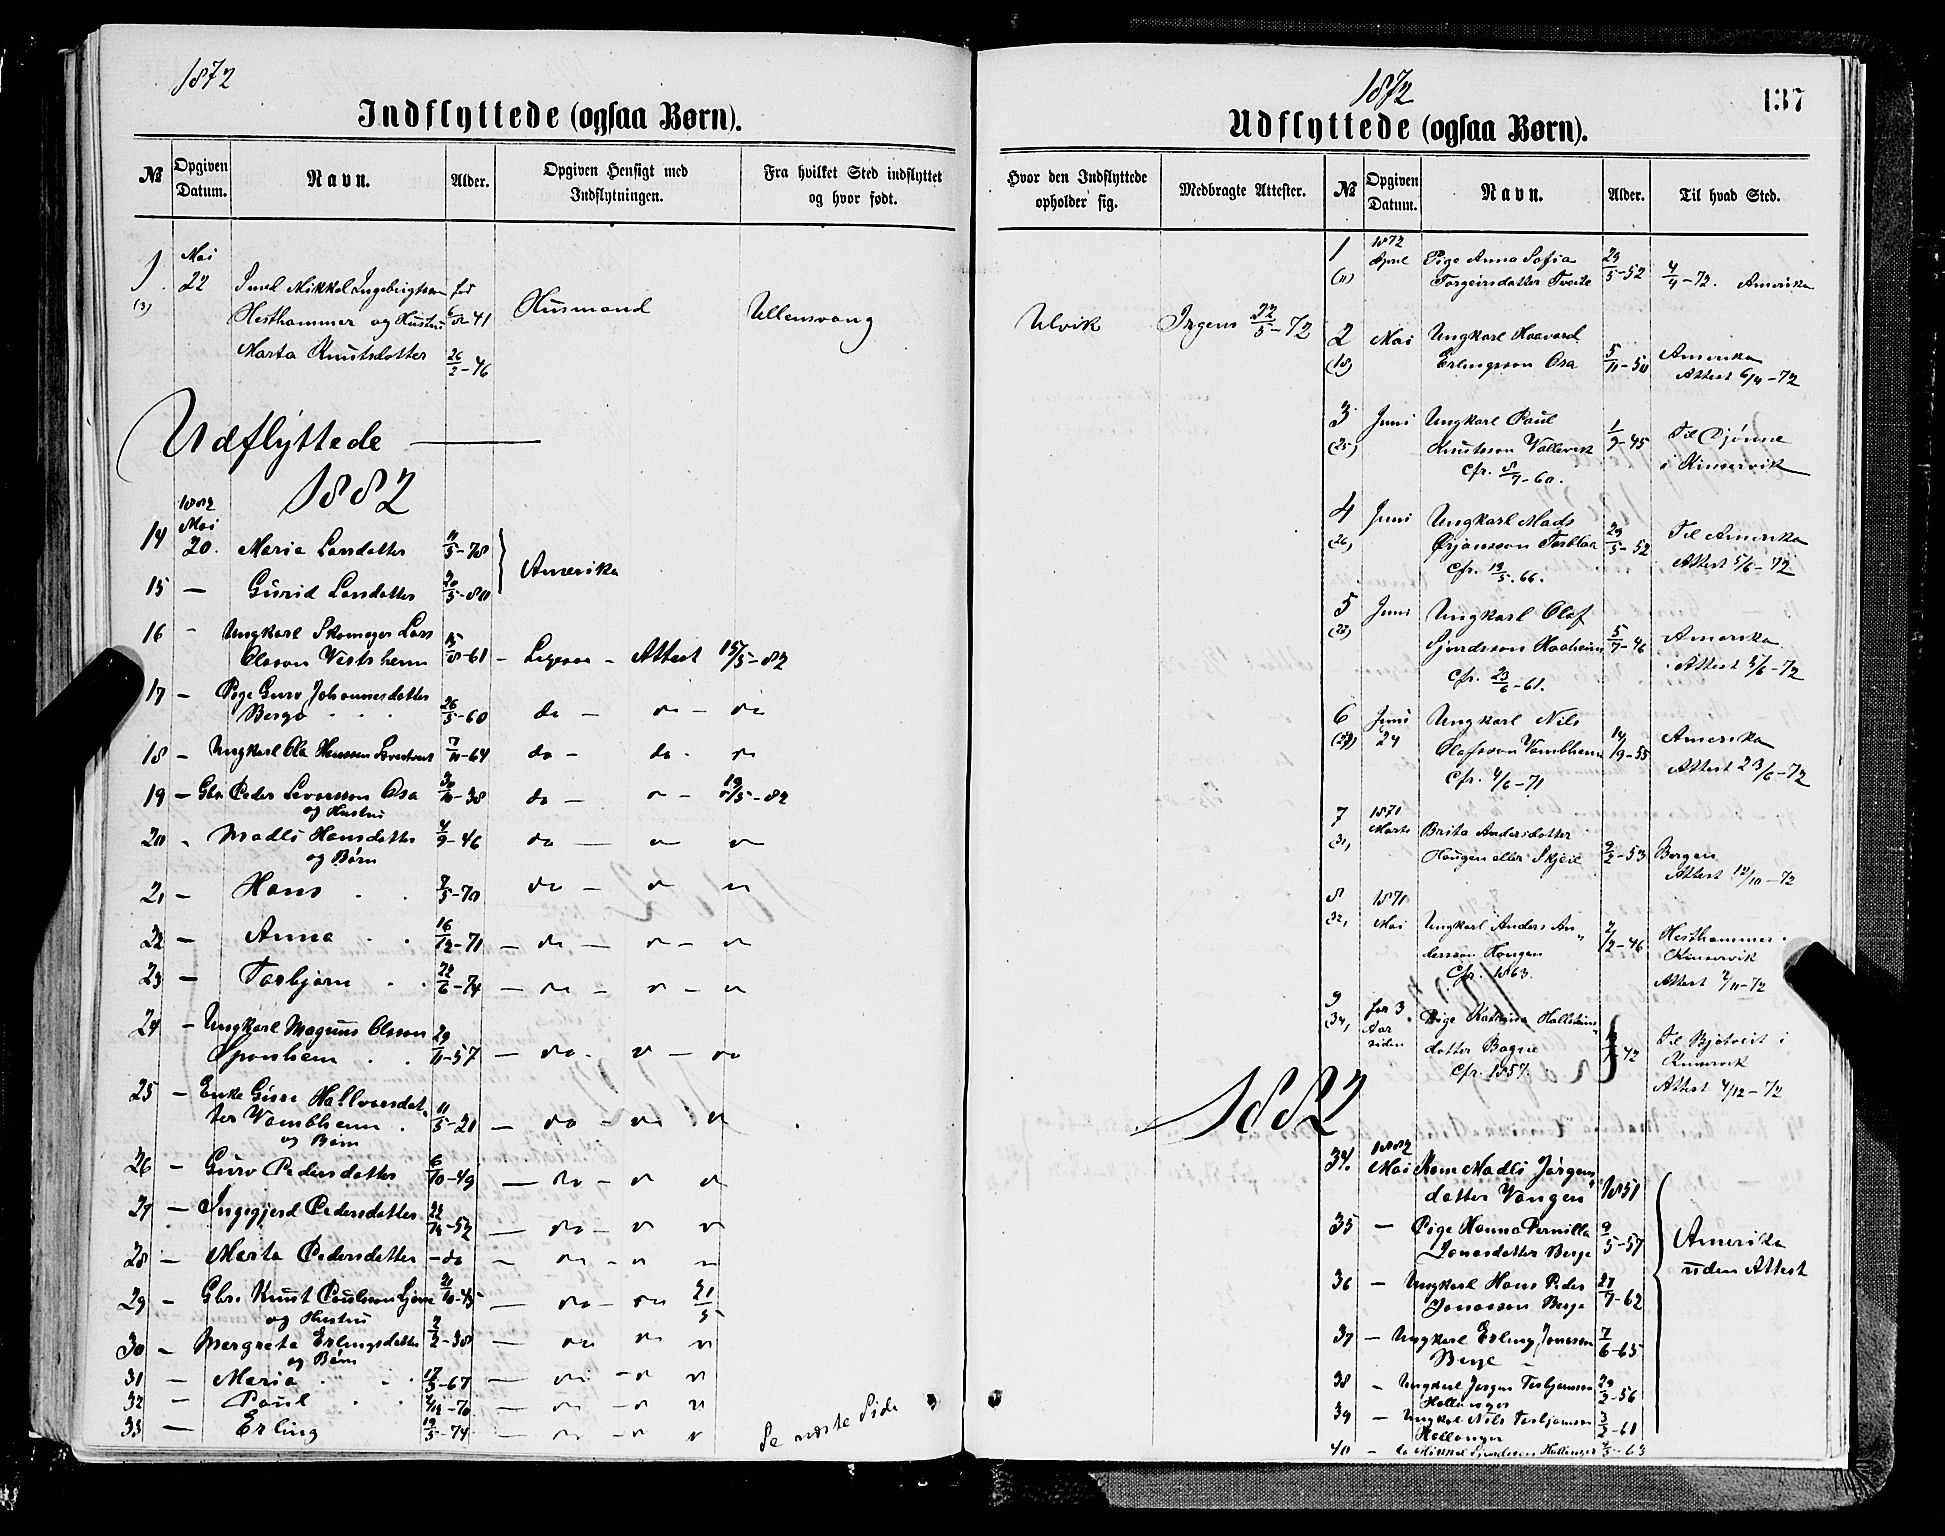 1872
Indflyttede (ogsaa Børn).
№ Opgiven Datum. Navn. Alder. Opgiven Hensigt med Indflytningen. Fra hvilket Sted indflyttet og hvor født.
Mai
1 22 Mikkel Ingebrigtsen
(3) Hesthammer og Hustru 6/8-41 Husmand Ullensvang
Marta Knutsdatter 26/2-46
Udflyttede
1882
1882
Mai
14 20. Maria Larsdatter 11/5-78
Amerika
15 — Gurid Larsdatter 20/5-80
16 - Ungkarl Lars
Olsson Vestrheim 15/8-61 — Attest 15/5-82
17 — Pige Guro Johannesdatter
Berge 26/5-60 do —
18 — Ungkarl Ola 7/11-64 do — do.
19 — Gbr. Peder Sevarsson Osa 30/10-38 do — 19/5-82
og Hustru
20 - Madli Hansdatter 4/9-46 do —
og Børn
21 — Hans 7/5-70 do —
22 — Anna 16/12-71 — do —
23 — Torbjørn 22/6-74 — do —
24 — Ungkarl Magnus Olsson
Sponheim 29/11-57 — do -
25 — Enke Guro Hallvarsdat-
ter Vambheim 11/5-21 — do —
og Børn
26 — Guro Pedersdatter 6/10-49 — do —
27 — Ingegjerd Pedersdatter — do —
28 — Marta Pedersdatter - do — do —
29 — Gbr. Knut Paulsson — do — 21/5
og Hustru
30 — Margreta Erlingsdatter 2/2-38 — do
og Børn
31 — Maria 17/5-67 — do -
32 — Paul — do -
33 — Erling 19/5-74 — do -
Se næste Side
1872
137
Udflyttede (ogsaa Børn).
Hvor den Indflyttede opholder sig. Medbragte Attester. № Opgiven Datum. Navn. Alder. Til hvad Sted.
1 1872 April Pige Anna Sofia 23/5-52 4/4-72. Amerika
(11) Torgeirsdatter Tveite
Ulvik Irgens 22/5-72
2 Mai Ungkarl Haavard
(18) Erlingsson Osa 5/11-50 Amerika
Attest 6/4-72
3 Juni Ungkarl Paul
(25) Knutsson Vallevik 1/9-45 Til Djønne
Cfr. 8/7-60. i Kinservik
4 Juni Ungkarl Mads
(26) Ørjansson Torblaa 23/5-52 Til Amerika
Cfr. 13/5.66. Attest 5/6-72
5 Juni Ungkarl Olaf
(28) Sjurdsson Haaheim 5/7-46 Amerika
Cfr. 23/6-61. Attest 5/6-72
6 Juni Ungkarl Nils
(29) 24 Olafsson Vambheim 14/9-55 Amerika
Cfr. 4/6-71 Attest 23/6-72
7 1871
(31) Marts Brita Andersdatter
Haugen eller Skjeie 9/2-53 Bergen
Attest 12/10-72
8 1871
(32) Mai Ungkarl Anders An-
dersson Haugen 2/2-46 Hesthammer i
Cfr. 1863. Kinservik
Attest 2/11-72
9 for 3
(34) Aar siden Pige Katrina Hallstein-
datter Bagne Til Bjotveit i
Cfr. 1857. Kinservik
Attest 4/12-72
1882
1882
34. Mai Kone Madli Jørgens-
datter Vangen 1851
35 — Pige Hanna Pernilla
Jonasdatter Berge 9/5-57 Amerika
uden Attest
36 — Ungkarl Hans Peder
Jonassen Berge 27/7-62
37 — Ungkarl Erling Jonassen
Berge 7/6-65
38 - Ungkarl Jørgen Torbjørnsson
Hallanger 29/2-56
39 — Ungkarl Nils Torbjørnsson
Hallanger 3/3-61
40 — do Mikkel Sjurdsson Hallanger